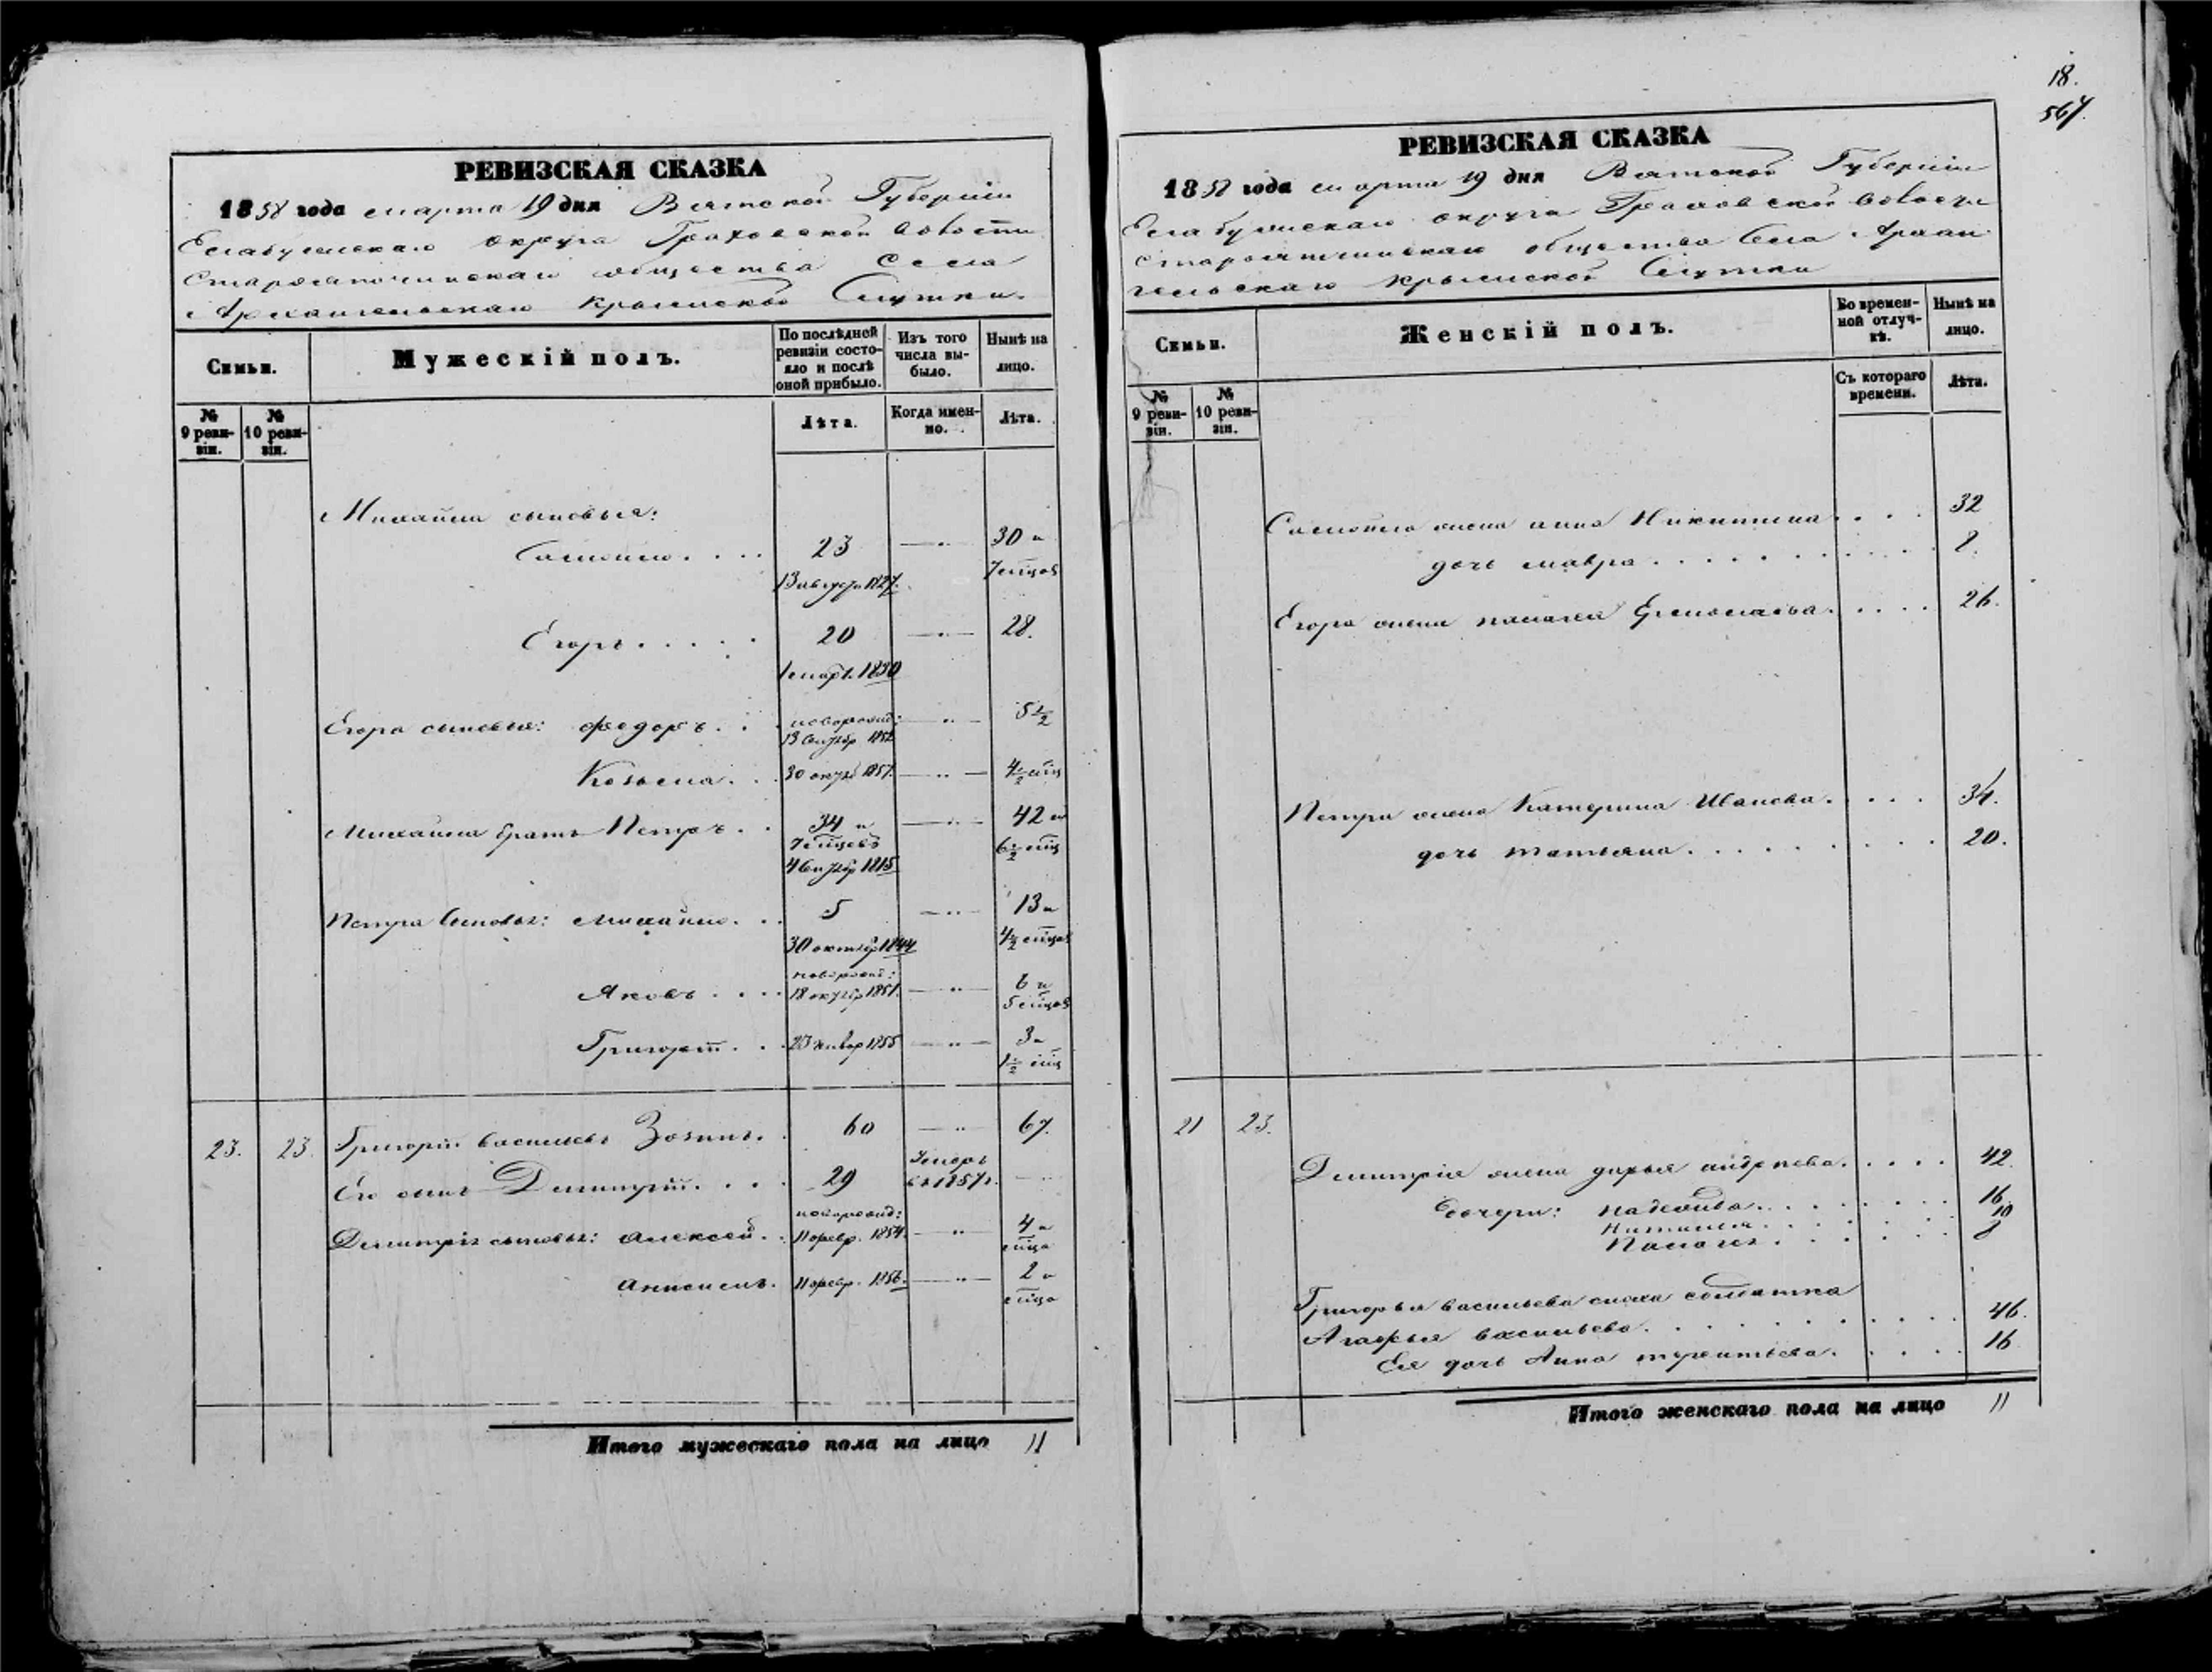 18.
567.
РЕВИЗСКАЯ СКАЗКА
1858 года марта 19 дня Вятской Губернии
Елабужскаго округа Граховской волости
Старояпочинскаго общества села
Архангельскаго Крымской Слутки.
Семьи.
Мужескій полъ.
По послѣдней ревизіи состояло и послѣ оной прибыло.
Изъ того числа выбыло.
Нынѣ на лицо.
№ 9 ревизіи.
№ 10 ревизіи.
Лѣта.
Когда именно.
Лѣта.
Михайла сыновья:
Самойло . . . . 23 — " — 30 и
13 августа 1827. 7 м͞цов
Егоръ . . . . . 20 — " — 28.
1 1830
Егора сыновья: Федоръ . . новорожд: — " — 5 1/2
13 сентябр 1852
Козьма . . 30 октб 1857. — " — 4 1/2 м͞ц
Михайла братъ Петръ . . 34 и — " — 42 и
7 м͞цевъ 6 1/2 м͞ц
4 сентбр 1815
Петра сыновья: Михайло . . 5 — " — 13 и
30 октябр 1844 4 1/2 м͞цов
новорожд:
Яковъ . . . . 18 октбр 1851. — " — 6 и
5 м͞цов
Григорій . . . 23 январ 1855 — " — 3 и
1 1/2 м͞ц
23. 23. Григорій Васильевъ Зонинъ . . 60 — " — 67.
Его сынъ Димитрій . . . . 29 Умеръ въ 1857 г. — "
новорожд:
Димитрія сыновья: Алексей . . 11 февр. 1854. — " — 4 и
м͞ца
Анисимъ . 11 февр. 1856. — " — 2 и
м͞ца
Итого мужескаго пола на лицо 11
РЕВИЗСКАЯ СКАЗКА
1858 года марта 19 дня Вятской Губерніи
Елабужскаго округа Граховской волости
общества Села Архан
гельскаго Крымской Слутки
Семьи.
Женскій полъ.
Во временной отлучкѣ.
Нынѣ на лицо.
№ 9 ревизіи.
№ 10 ревизіи.
Съ котораго времени.
Лѣта.
Самойла жена Анна Никитина . . . . 32
дочь Мавра . . . . . . . . . . 8.
Егора жена Палагея Ермолаева . . . . . 26.
Петра жена Катерина Иванова . . . . 34.
дочь Татьяна . . . . . . . . . 20.
21 23.
Димитрія жена Дарья Андреева . . . . . 42.
Дочери: Надежда . . . . . . . . 16
Наталья . . . . . . . 10
Палагея . . . . . . 8
Григорья Васильева сноха солдатка
Агафья Васильева . . . . . . . . . . 46.
Ея дочь Анна Терентьева . . . . . 16
Итого женскаго пола на лицо 11